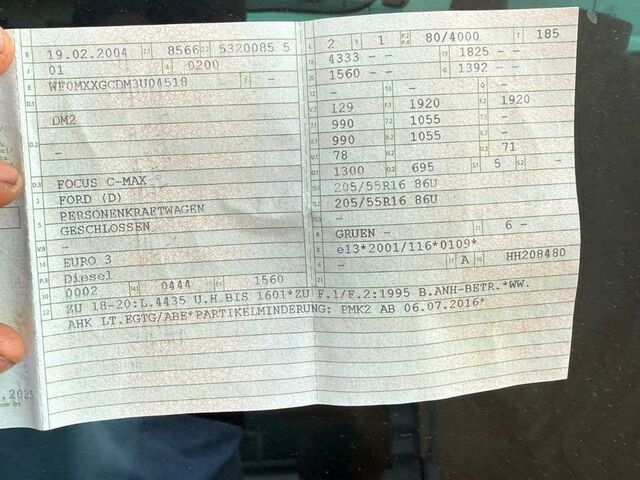 B 19.02.2004 2.1 8566 2.2 5320085 5
J 01 4 0200
E WF0MXXGCDM3U04518 3 –
D.1
DM2
D.2 –
D.3 FOCUS C-MAX
2 FORD (D)
5 PERSONENKRAFTWAGEN
GESCHLOSSEN
V.9 –
14 EURO 3
P.3 Diesel
10 0002 14.1 0444 P.1 1560
22 ZU 18-20:L.4435 U.H.BIS 1601*ZU F.1/F.2:1995 B.ANH-BETR.*WW.
AHK LT.EGTG/ABE*PARTIKELMINDERUNG: PMK2 AB 06.07.2016*
L 2 9 1 P.2 P.4 80/4000 T 185
18 4333 – – 19 1825 – –
20 1560 – – G 1392 –
12 – 13 – Q –
V.7 129 F.1 1920 F.2 1920
7.1 990 7.2 1055 7.3 –
8.1 990 8.2 1055 8.3 –
U.1 78 U.2 – U.3 71
O.1 1300 O.2 695 S.1 5 S.2 –
15.1 205/55R16 86U
15.2 205/55R16 86U
15.3 –
R GRUEN – 11 6 –
K e13*2001/116*0109*
6 – 17 A 16 HH208480
21
.2025